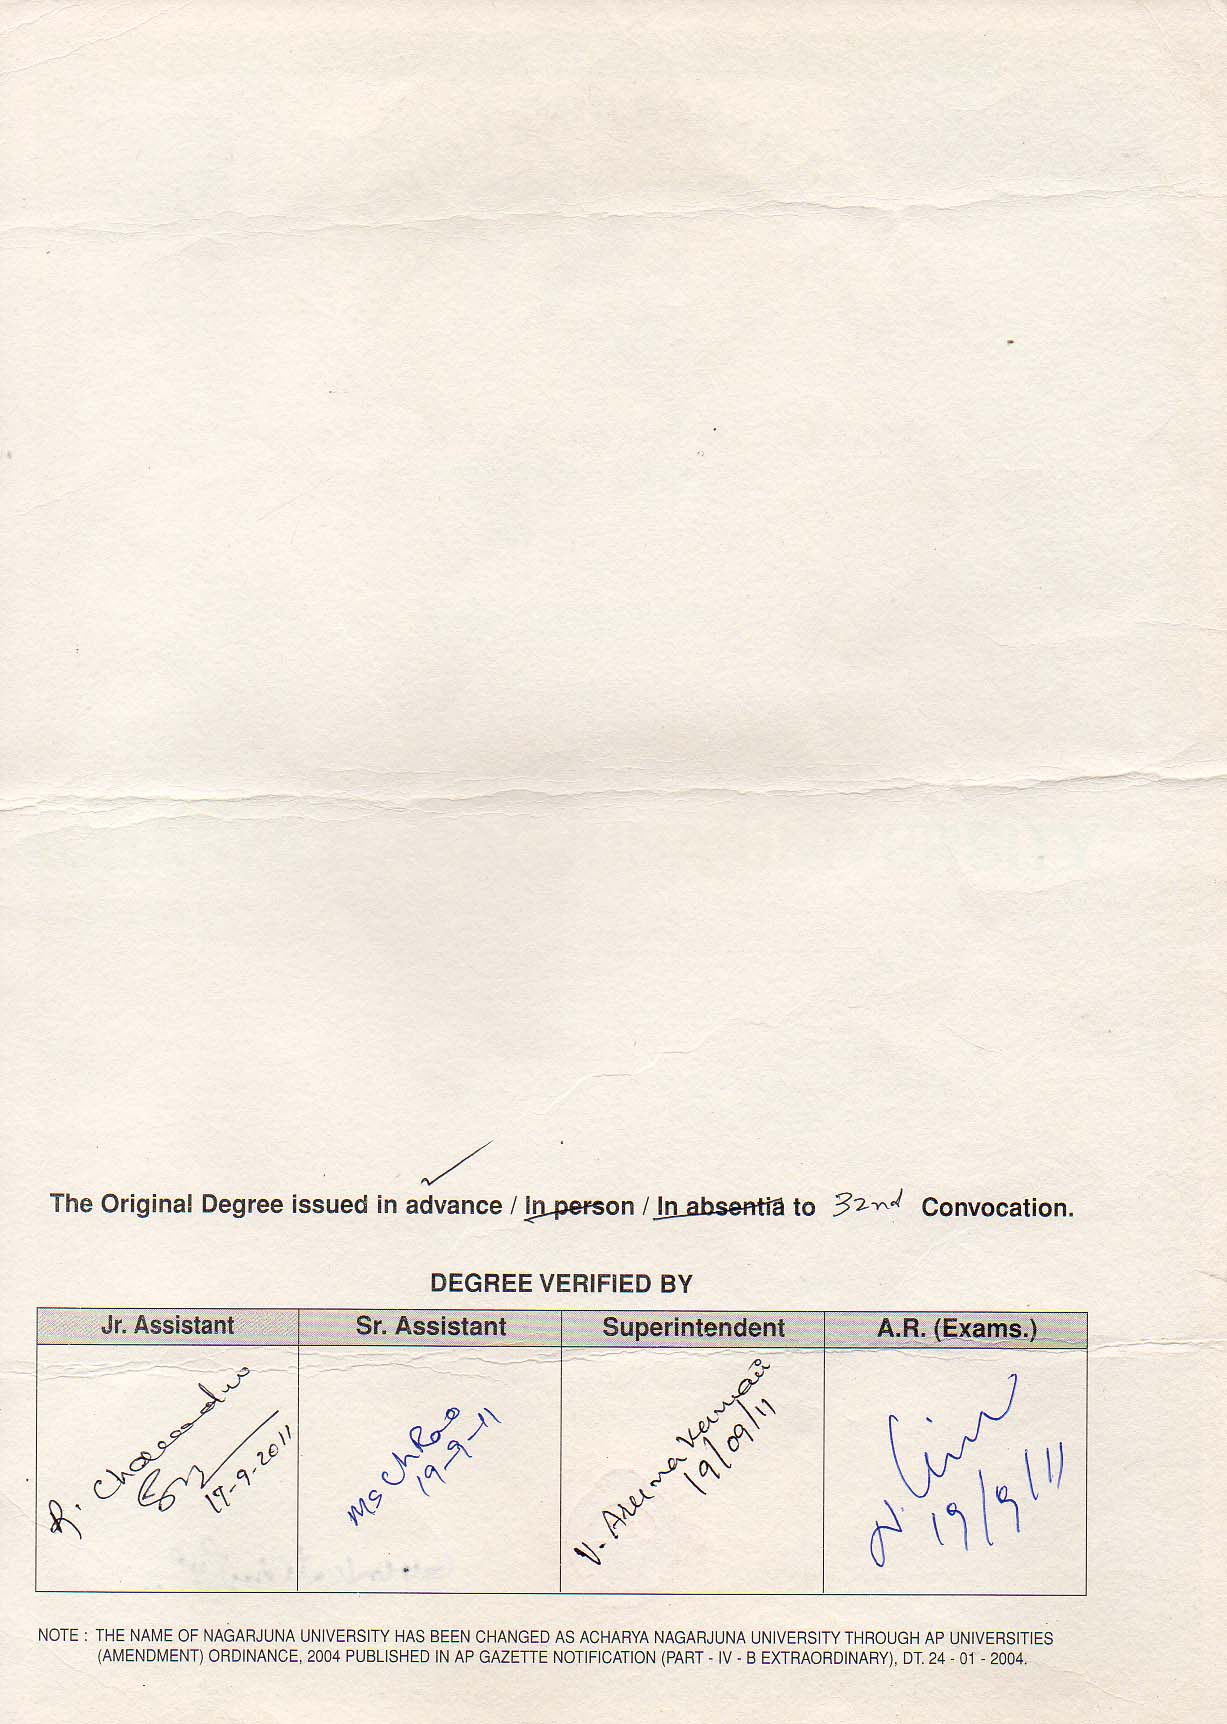 The Original Degree issued in advance / In person / In absentia to 32nd Convocation.
DEGREE VERIFIED BY
Jr. Assistant Sr. Assistant Superintendent A.R. (Exams.)
R.
17-9-2011
MS Ch Rao
19-9-11
V. Aruna Kumari
19/09/11
N.
19/9/11
NOTE : THE NAME OF NAGARJUNA UNIVERSITY HAS BEEN CHANGED AS ACHARYA NAGARJUNA UNIVERSITY THROUGH AP UNIVERSITIES
(AMENDMENT) ORDINANCE, 2004 PUBLISHED IN AP GAZETTE NOTIFICATION (PART - IV - B EXTRAORDINARY), DT. 24 - 01 - 2004.